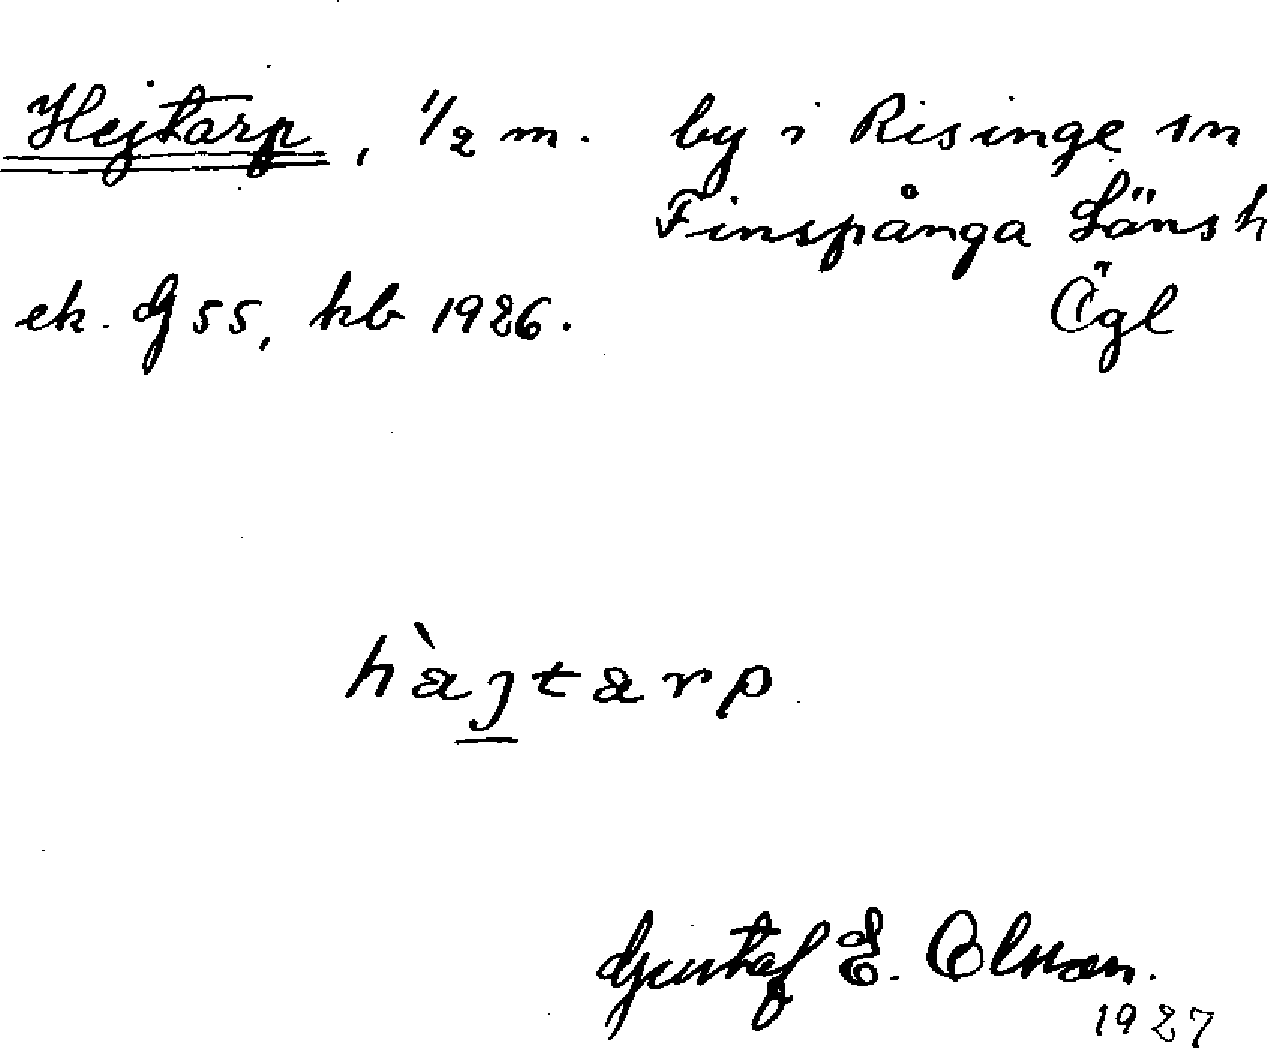 Hejtarp, 1/2 m. by i Risinge sn
Finspånga Länsh
ek. G 55, hb 1926. Ögl
hàjtarp
Gustaf E. Olsson.
1927